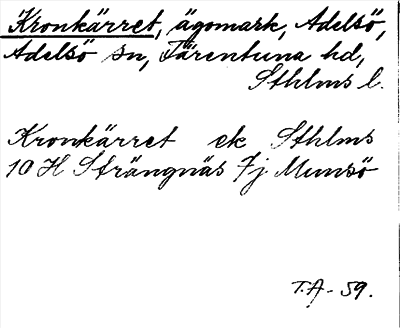 Kronkärret, ägomark, Adelsö,
Adelsö sn, Färentuna hd,
Sthlms l.
Kronkärret ek Sthlms
10 H Strängnäs 7j Munsö
T.A - 59.